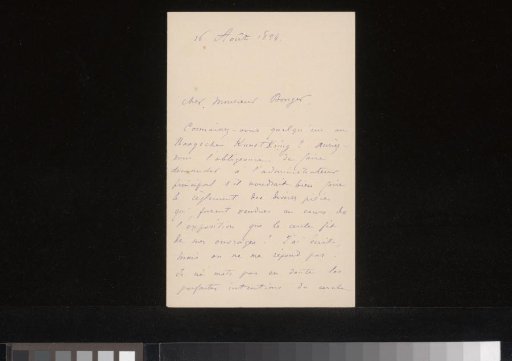 26 Août 1894.
Cher Monsieur Bonger.
Connaissez-vous quelqu'un au
Haagschen Kunst Kring ? auriez-
vous l'obligeance de faire
demander à l'administrateur
principal s'il voudrait bien faire
le règlement des diverses pièces
qui furent vendues au cours de
l'exposition que le cercle fit
de nos ouvrages ? J'ai écrit,
mais on ne me répond pas.
Je ne mets pas en doute les
parfaites intentions du cercle